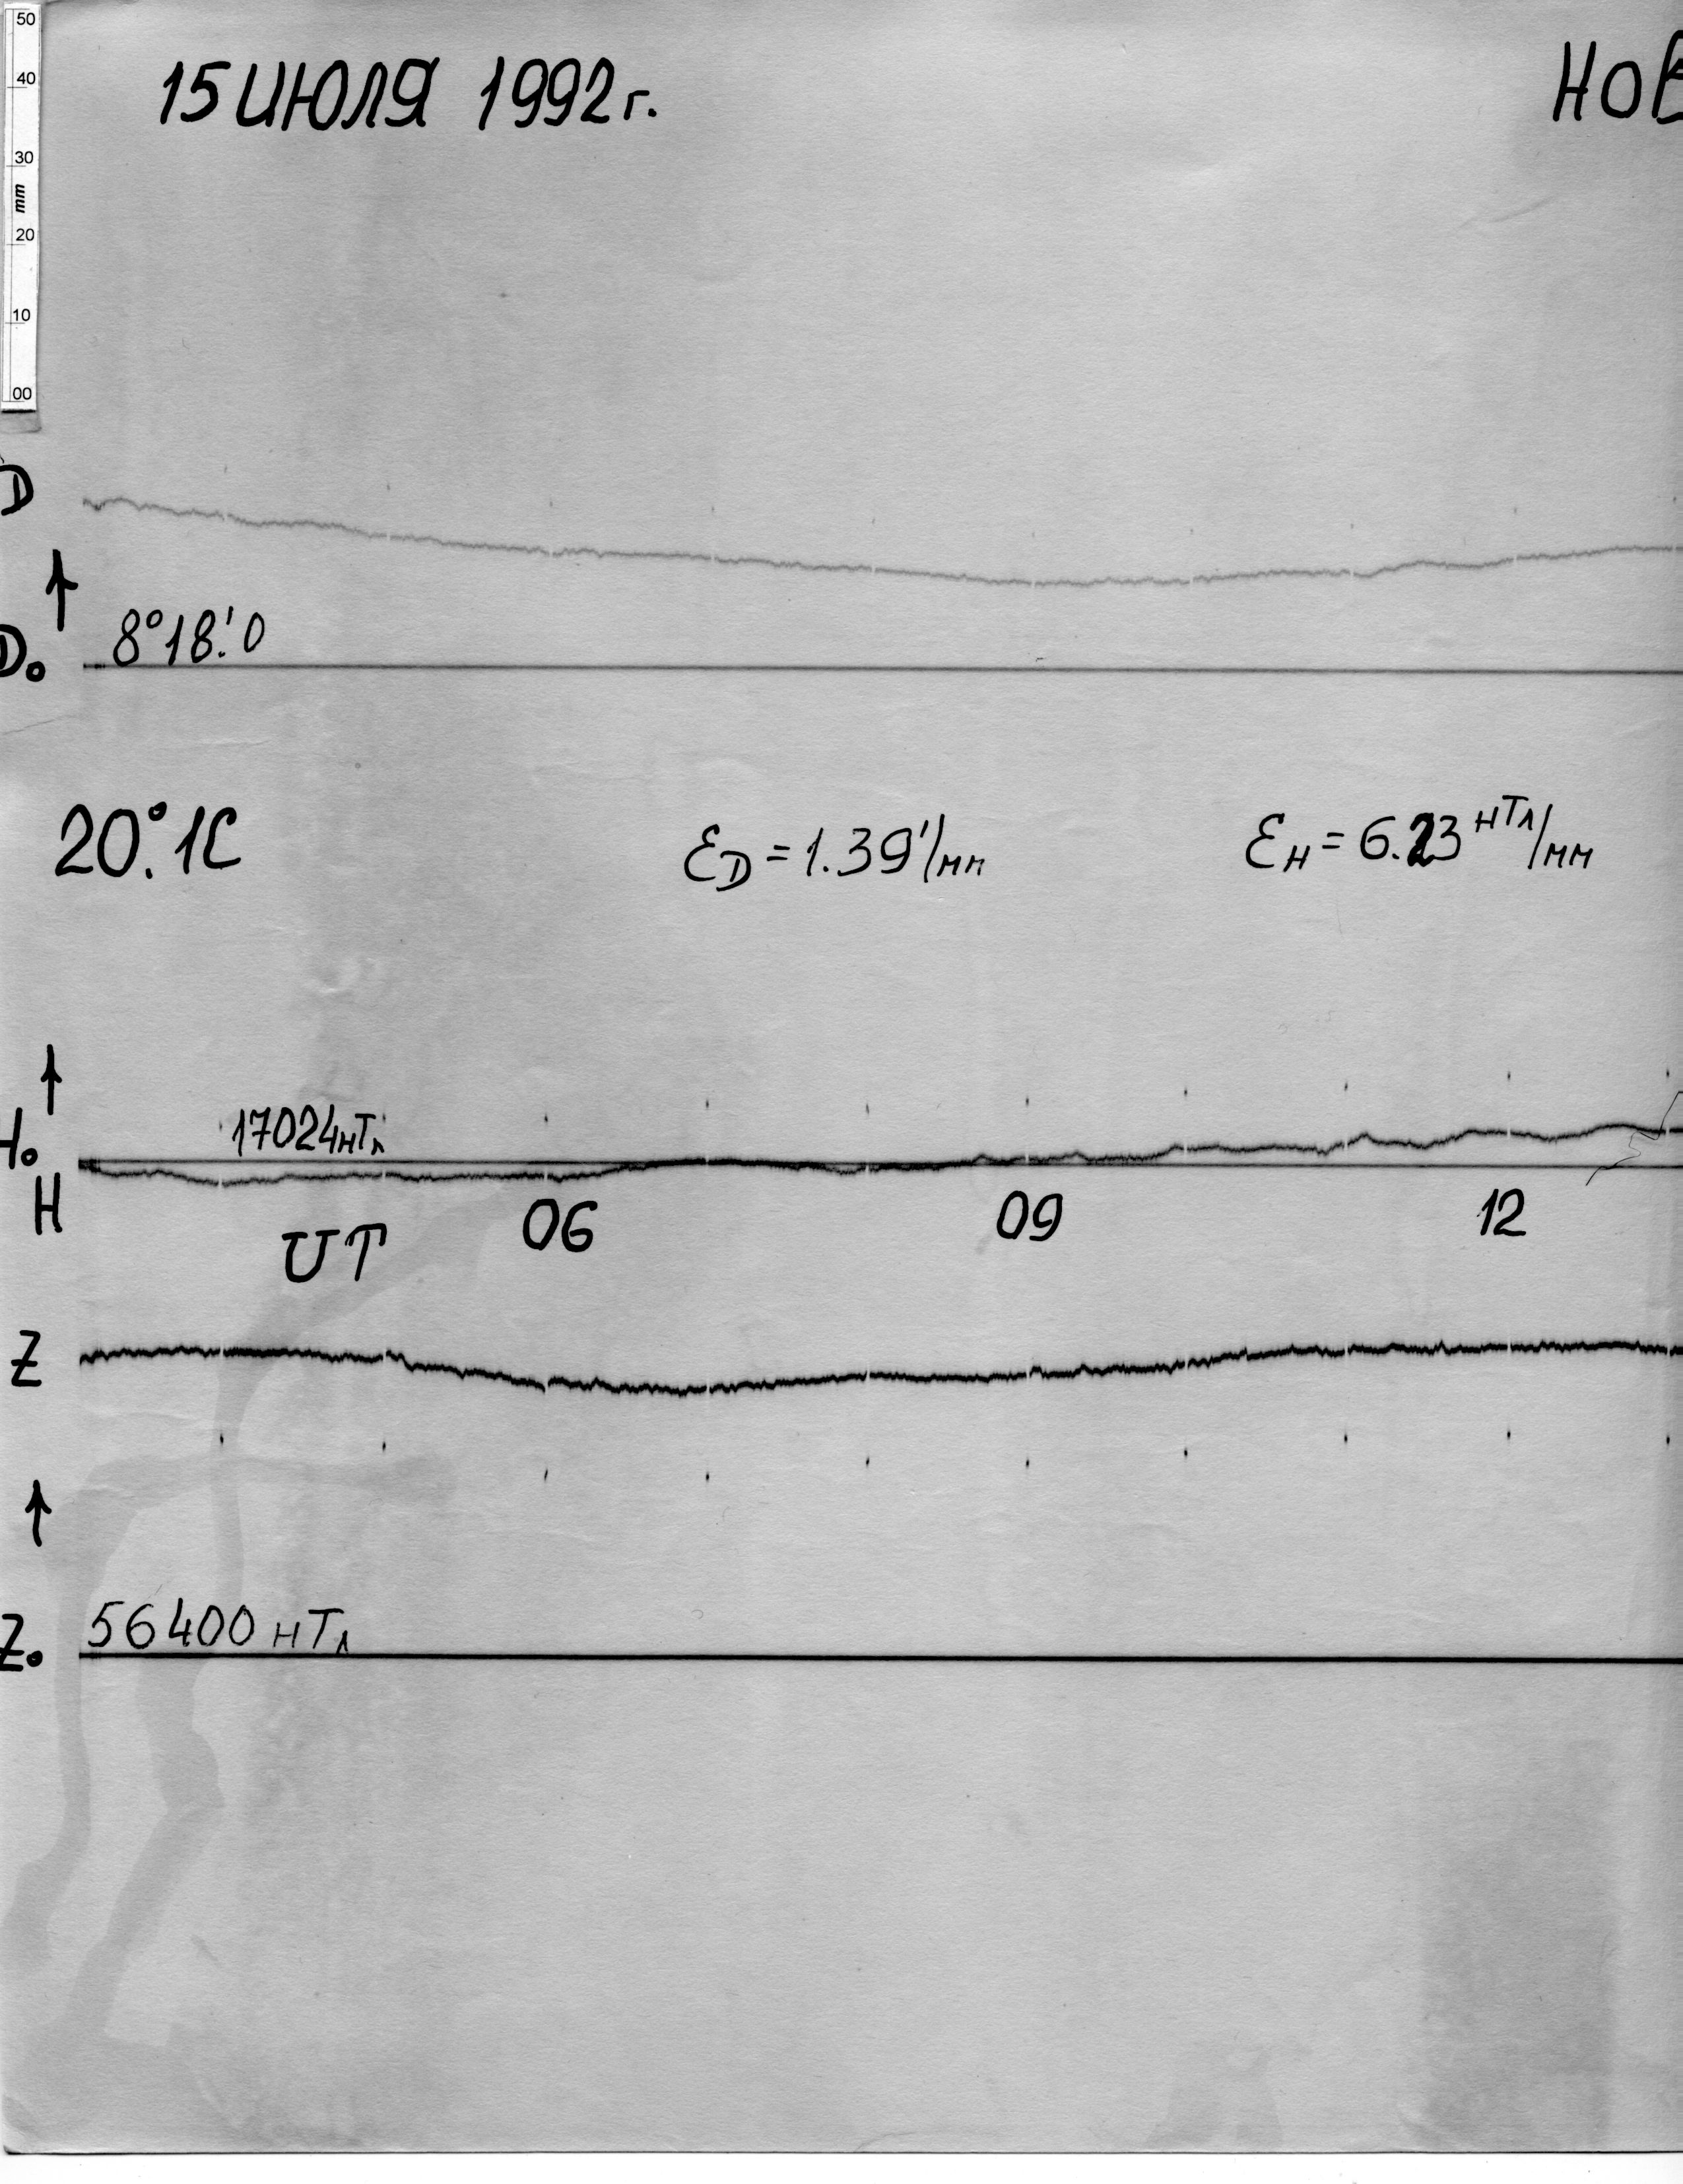 50
40
30
mm
20
10
00
15 ИЮЛЯ 1992 г.
НОВ
D
D₀ 8°18.'0
20.°1C
ε_D = 1.39'/мм
ε_H = 6.23 нТл/мм
H₀ 17024 нТл
H
UT 06 09 12
Z
Z₀ 56400 нТл